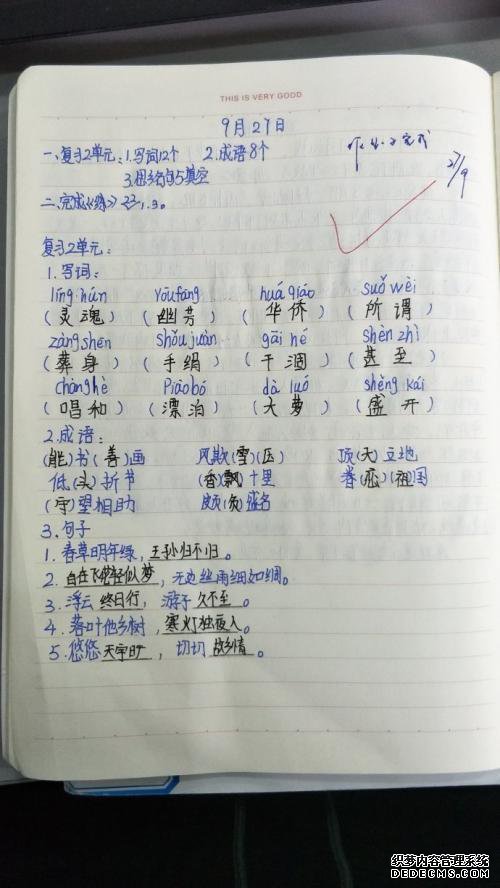 THIS IS VERY GOOD
9月27日
一、复习2单元:1.写词12个 2.成语8个
3.思乡句5填空
二、完成《练》
27/9
复习2单元:
1.写词:
líng hún yōufāng huá qiáo suǒ wèi
(灵魂) (幽芳) (华侨) (所谓)
zàng shēn shǒujuàn gān hé shèn zhì
(葬身) (手绢) (干涸) (甚至)
chànghè Piāobó dà luó shèng kāi
(唱和) (漂泊) (大萝) (盛开)
2.成语:
(能)书(善)画 风欺(雪)(压) 顶(天)立地
低(头)折节 (香)(飘)十里 眷(恋)(祖)国
(守)望相助 颇(负)盛名
3.句子
1.春草明年绿,王孙归不归。
2.自在飞花轻似梦,无边丝雨细如绸。
3.浮云终日行,游子久不至。
4.落叶他乡树,寒灯独夜人。
5.悠悠天宇旷,切切故乡情。
织梦内容管理系统
DEDECMS.COM